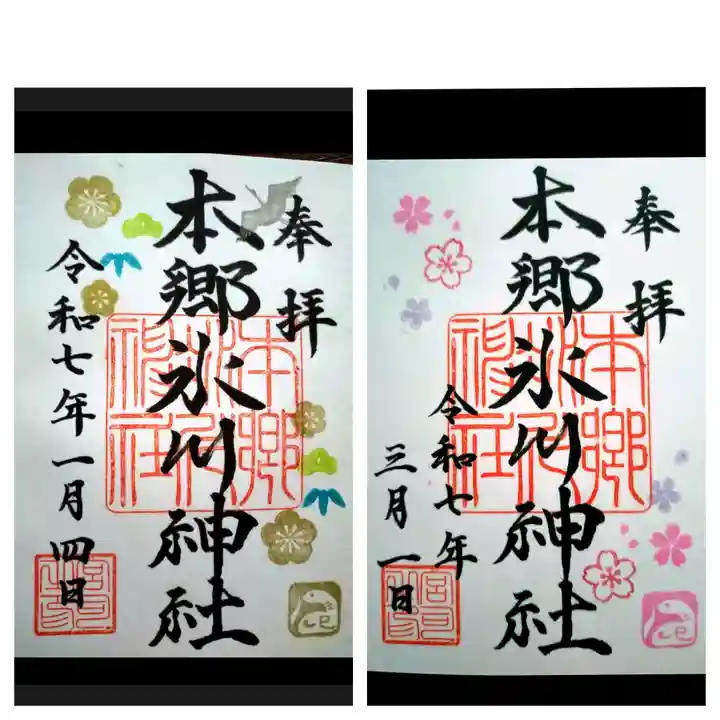 奉拝
本郷氷川神社
令和七年一月四日
本郷
氷川
神社
巳
奉拝
本郷氷川神社
令和七年
三月一日
本郷
氷川
神社
巳